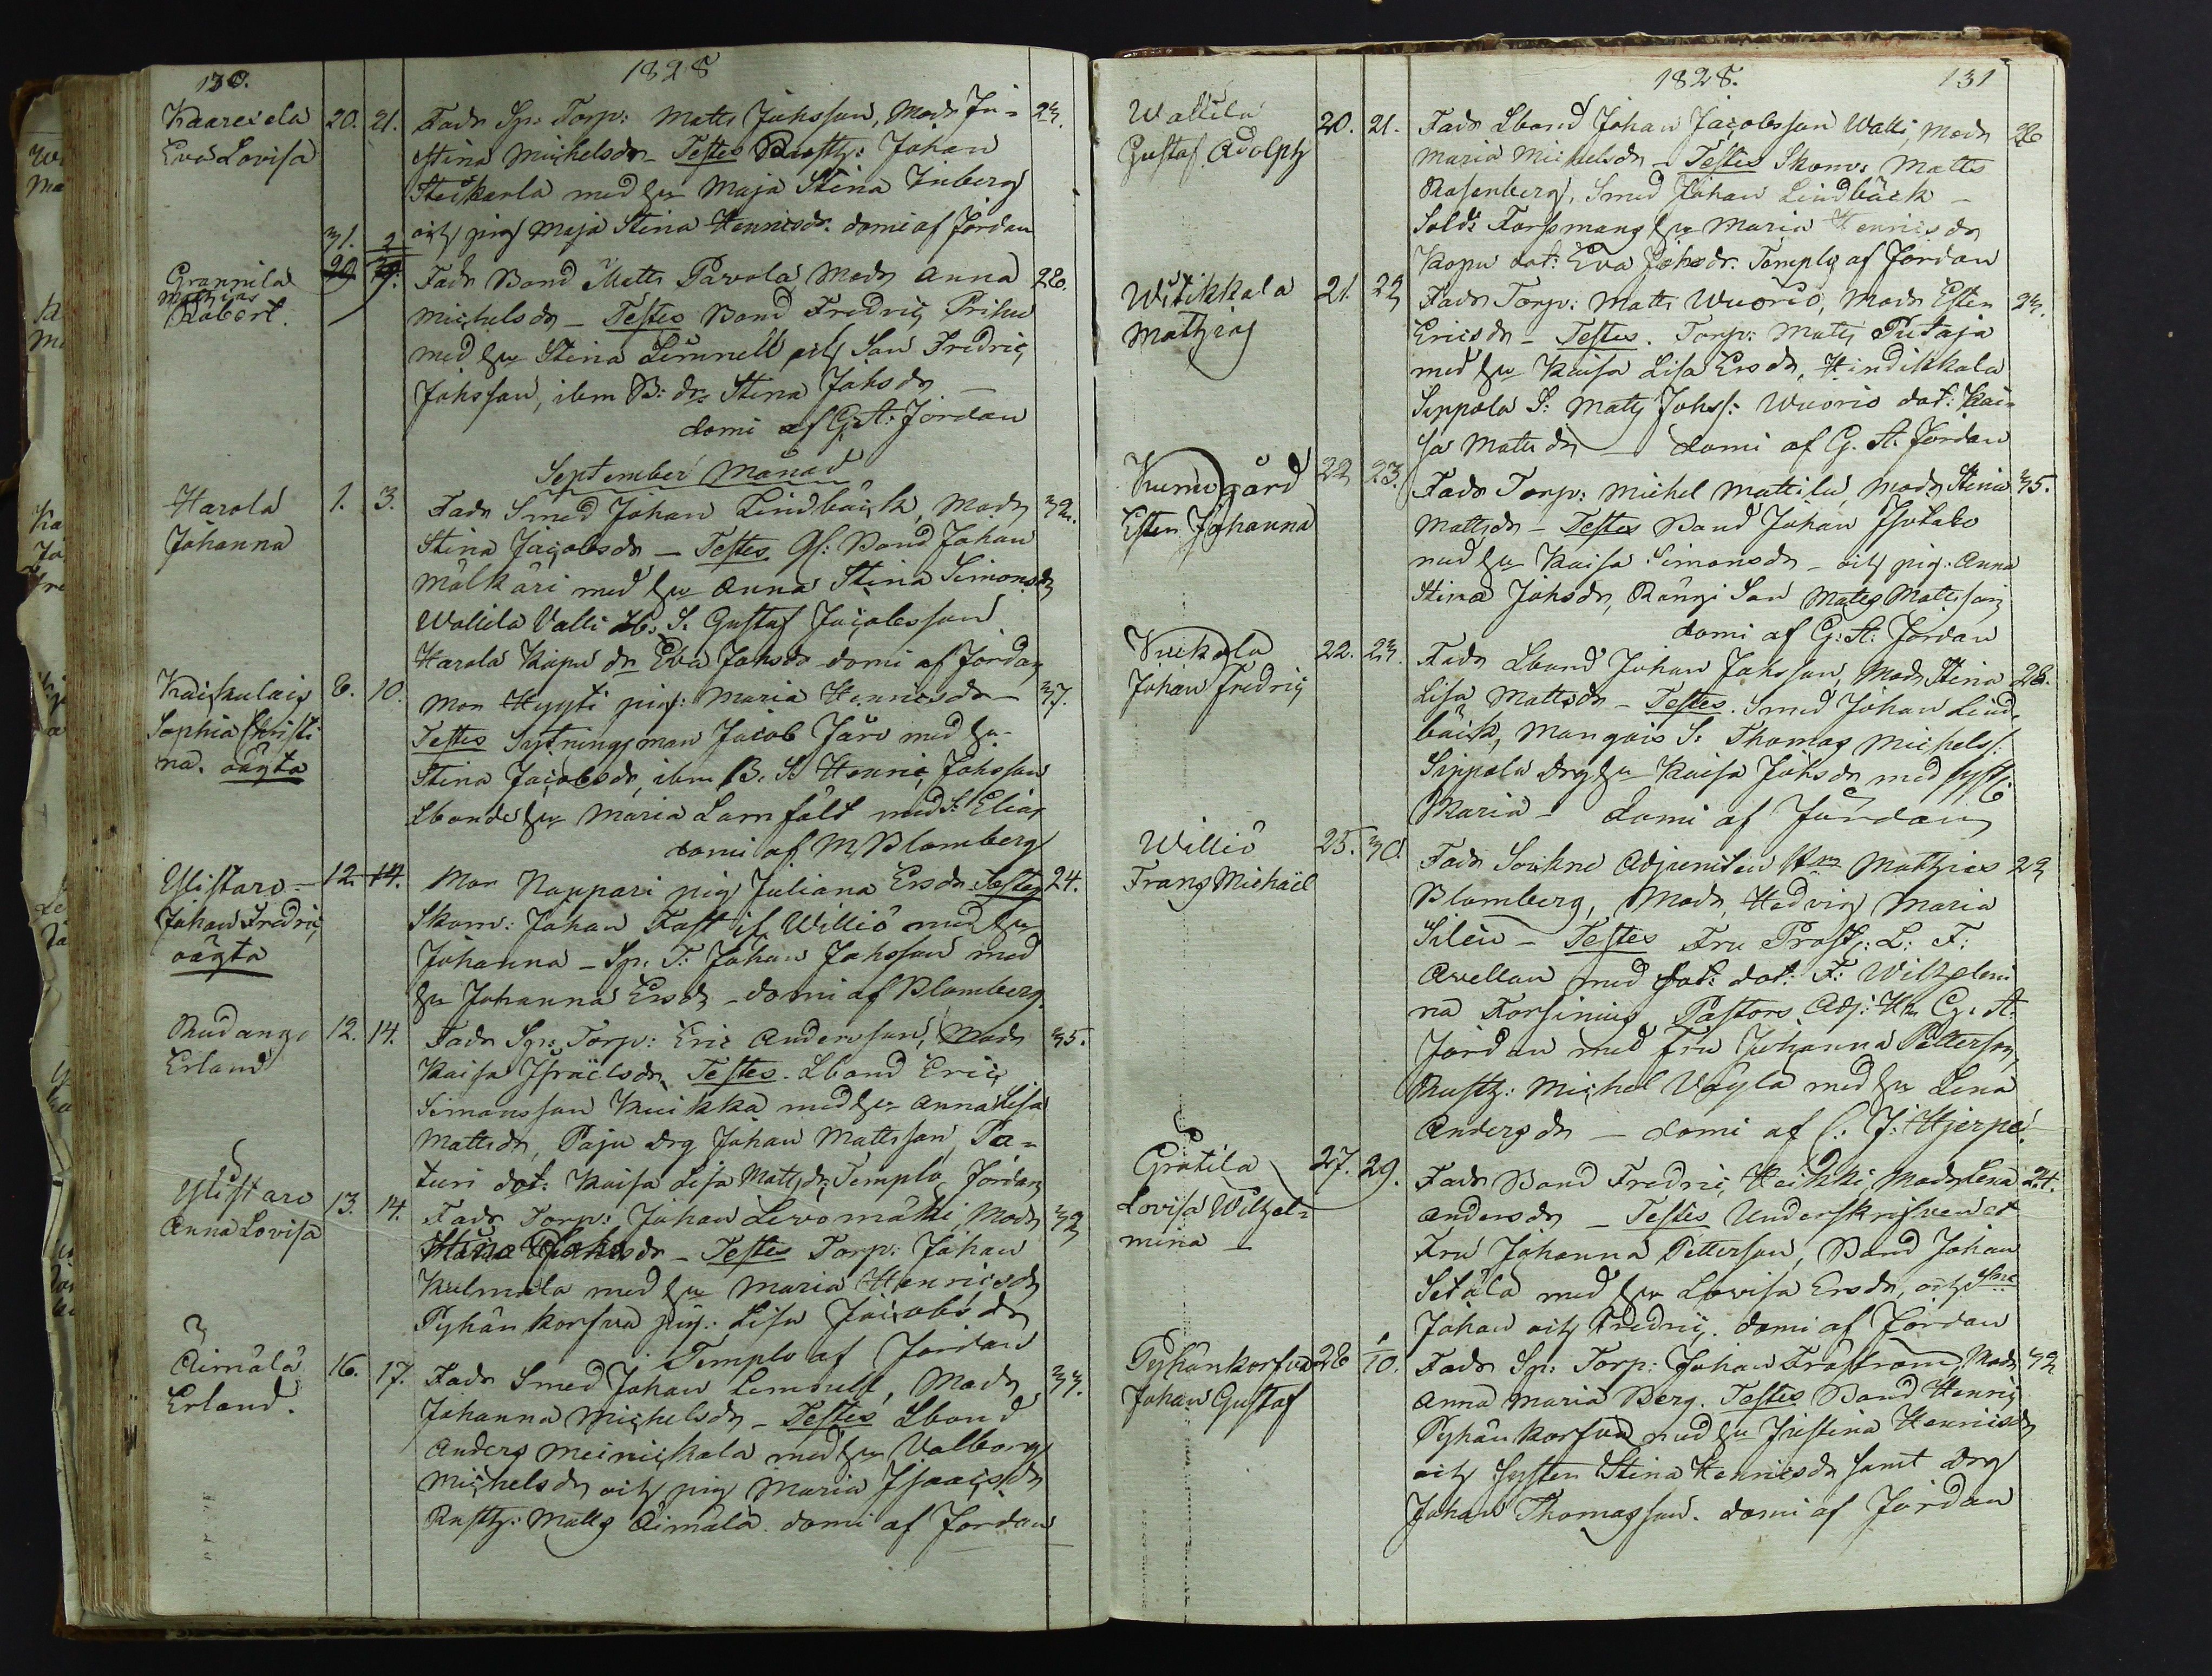 130.
1828
Kaarela
Eva Lovisa
20. 21. Fadr Sp: Torp: Matts Johsson, Modr Ju- 23.
stina Michelsdr - Testes Rusth: Johan
med hu Maja Stina Enberg
och pig Maja Stina Henricsdr. domi af Jordan
31. 2
Grannila
Mathias
Robert.
29 Fadr Bond Matts Parvola, Modr Anna 28.
Michelsdr - Testes Bond Fredric Prihu
med hu Stina Limnell och Son Fredric
Johsson, ibm B: dr Stina Johsdr
domi af G. A: Jordan
September Månad
Harola
Johanna
1. 3. Fadr Smed Johan Lindbäck, Modr 32.
Stina Jacobsdr - Testes Gl: Bond Johan
Mälkäri med hu Anna Stina Simonsdr
Wallila Valli Lb: S: Gustaf Jacobsson
Harola Kopu dr Eva Johsdr domi af Jordan
Sophia Christi
na. oägta
8. 10. Mor Hyyti pig: Maria Henricsdr 37.
Testes Sytningsman Jacob Järv med hu
Stina Jacobsdr, ibm B. S: Henric Johsson
Lbonde hu Maria Lamfält med S: Elias
domi af M. Blomberg
Ylistaro -
Johan Fredric
oägta
12. 14. Mor Nappari pig Juliana Ersdr Testes 24.
Skom: Johan Fast if Williö med hu
Johanna - Sp. T: Johan Johsson med
hu Johanna Ersdr - domi af Blomberg.
Rudango
Erland
12. 14. Fadr Sp: Torp: Eric Andersson, Modr 35.
Kaisa Israëlsdr Testes. Lbond Eric
Simonsson Kuikka med hu Anna Lisa
Mattsdr, Paju drg Johan Mattsson, Pa-
turi dot: Kaisa Lisa Mattsdr, Templo, Jordan
Ylistaro
Anna Lovisa
13. 14. Fadr Torp: Johan Levomäki, Modr 32
Johsdr - Testes Torp: Johan
Kulmala med hu Maria Henricsdr
Pyhänkorfva pig: Lisa Jacobsdr
Templo af Jordan
Äimälä
Erland.
16. 17. Fadr Smed Johan Lemonell, Modr 33.
Johanna Michelsdr - Testes Lbond
Anders Meinickala med hu Valborg
Michelsdr och pig Maria Isaacsdr
Rusth: Matts Äimälä. domi af Jordan
1828.
131
Wallila
Gustaf Adolph
20. 21. Fadr Lbond Johan Jacobsson Walli, Modr 26
Maria Michelsdr - Testes Skom: Matts
Rosenberg, Smed Johan Lindbäck -
Sold: Forssmans hu Maria Henricsdr
Kopu dot: Eva Johsdr. Templo af Jordan
Witikkala
Mathias
21. 22 Fadr Torp: Matts Wuorio, Modr Ester 23.
Ericsdr - Testes. Torp: Matts Pietaja
med hu Kaisa Lisa Ersdr, Hindikkala
Sippola S: Matts Johss: Wuorio dot: Kai-
sa Mattsdr - domi af G. A. Jordan
Kumogård
Ester Johanna
22 23. Fadr Torp: Michel Mattila, Modr Stina 35.
Mattsdr - Testes Bond Johan Isotalo
med hu Kaisa Simonsdr - och pig: Anna
Stina Johsdr, Rängi Son Matts Mattsson
domi af G: A: Jordan
Johan Fredric
22. 23. Fadr Lbond Johan Johsson, Modr Stina 28.
Lisa Mattsdr - Testes. Smed Johan Lind-
bäck, Mangois S: Thomas Michelss:
Sippola drg hu Kaisa Johsdr med syst:
Maria - domi af Jordan
Williö
Frans Michaël
25. 30. Fadr Sockne Adjuncten Hr Mathias 29
Blomberg, Modr, Hedvig Maria
Silén - Testes Fru Prost: L: F:
Avellan med dot: F: Wilhelmi
na Forsinius, Pastors Adj: Hr G. A.
Jordan med Fru Johanna Petterson,
Rusth: Michel Uoyla med hu Lena
Andersdr - domi af C: J: Hjerpe.
Grötila
Lovisa Wilhel-
mina -
27. 29. Fadr Bond Fredric Heikki, Modr Lena 24.
Andersdr - Testes Underskrifven et
Fru Johanna Petterson, Bond Johan
Setälä med hu Lovisa Ersdr, och Sne
Johan och Fredric. domi af Jordan
Pyhänkorfva
Johan Gustaf
28 1/10. Fadr Sp: Torp: Johan Fröström, Modr 32
Anna Maria Berg. Testes Bond Henric
Pyhänkorfva med hu Justina Henricsdr
och syster Stina Henricsdr samt drg
Johan Thomasson. domi af Jordan